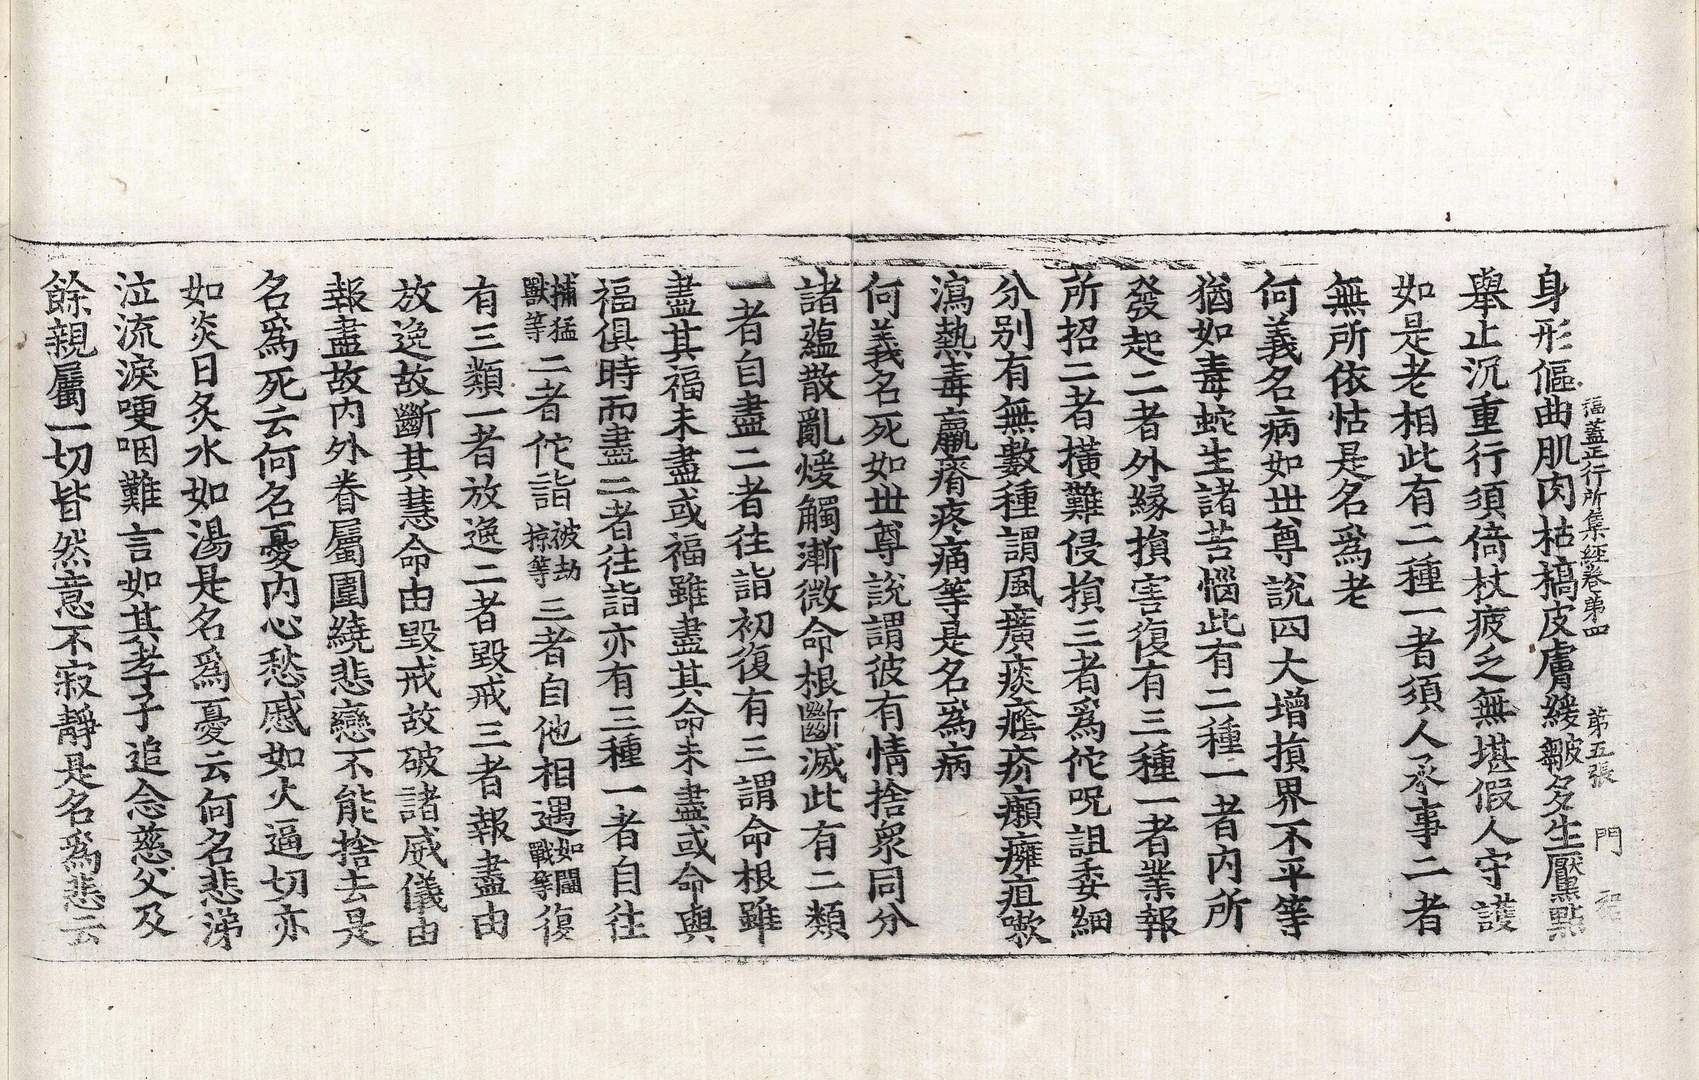 福蓋正行所集經卷第四 第五張 門
身形傴曲肌肉枯槁皮膚緩皺多生黶點
舉止沉重行須倚杖疲乏無堪假人守護
如是老相此有二種一者須人承事二者
無所依怙是名爲老
何義名病如世尊說四大增損界不平等
猶如毒蛇生諸苦惱此有二種一者內所
發起二者外緣損害復有三種一者業報
所招二者橫難侵損三者爲佗呪詛委細
分別有無數種謂風癀痰癊疥癩癰疽嗽
瀉熱毒羸瘠疼痛等是名爲病
何義名死如世尊說謂彼有情捨衆同分
諸蘊散亂煖觸漸微命根斷滅此有二類
一者自盡二者往詣初復有三謂命根雖
盡其福未盡或福雖盡其命未盡或命與
福俱時而盡二者往詣亦有三種一者自往
捕猛獸等二者佗詣被劫掠等三者自他相遇如鬪戰等復
有三類一者放逸二者毀戒三者報盡由
放逸故斷其慧命由毀戒故破諸威儀由
報盡故內外眷屬圍繞悲戀不能捨去是
名爲死云何名憂內心愁慼如火逼切亦
如炎日炙水如湯是名爲憂云何名悲涕
泣流淚哽咽難言如其孝子追念慈父及
餘親屬一切皆然意不寂靜是名爲悲云